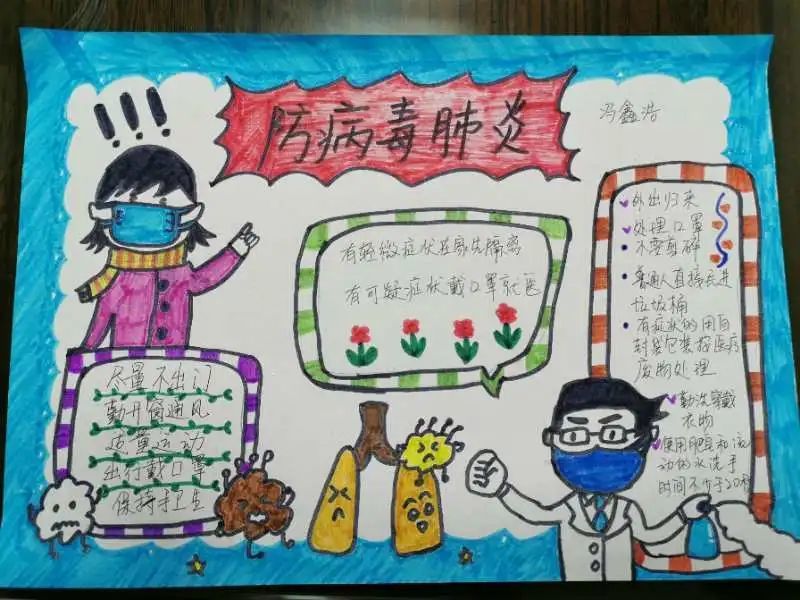 !!!
防病毒肺炎
冯鑫浩
有轻微症状在家先隔离
有可疑症状戴口罩就医
外出归来
处理口罩
不要剪碎
普通人直接丢进
垃圾桶
有症状的用自
封袋包装按医疗
废物处理
勤洗穿戴
衣物
使用肥皂和流
动的水洗手
时间不少于20秒
尽量不出门
勤开窗通风
适量运动
出行戴口罩
保持手卫生